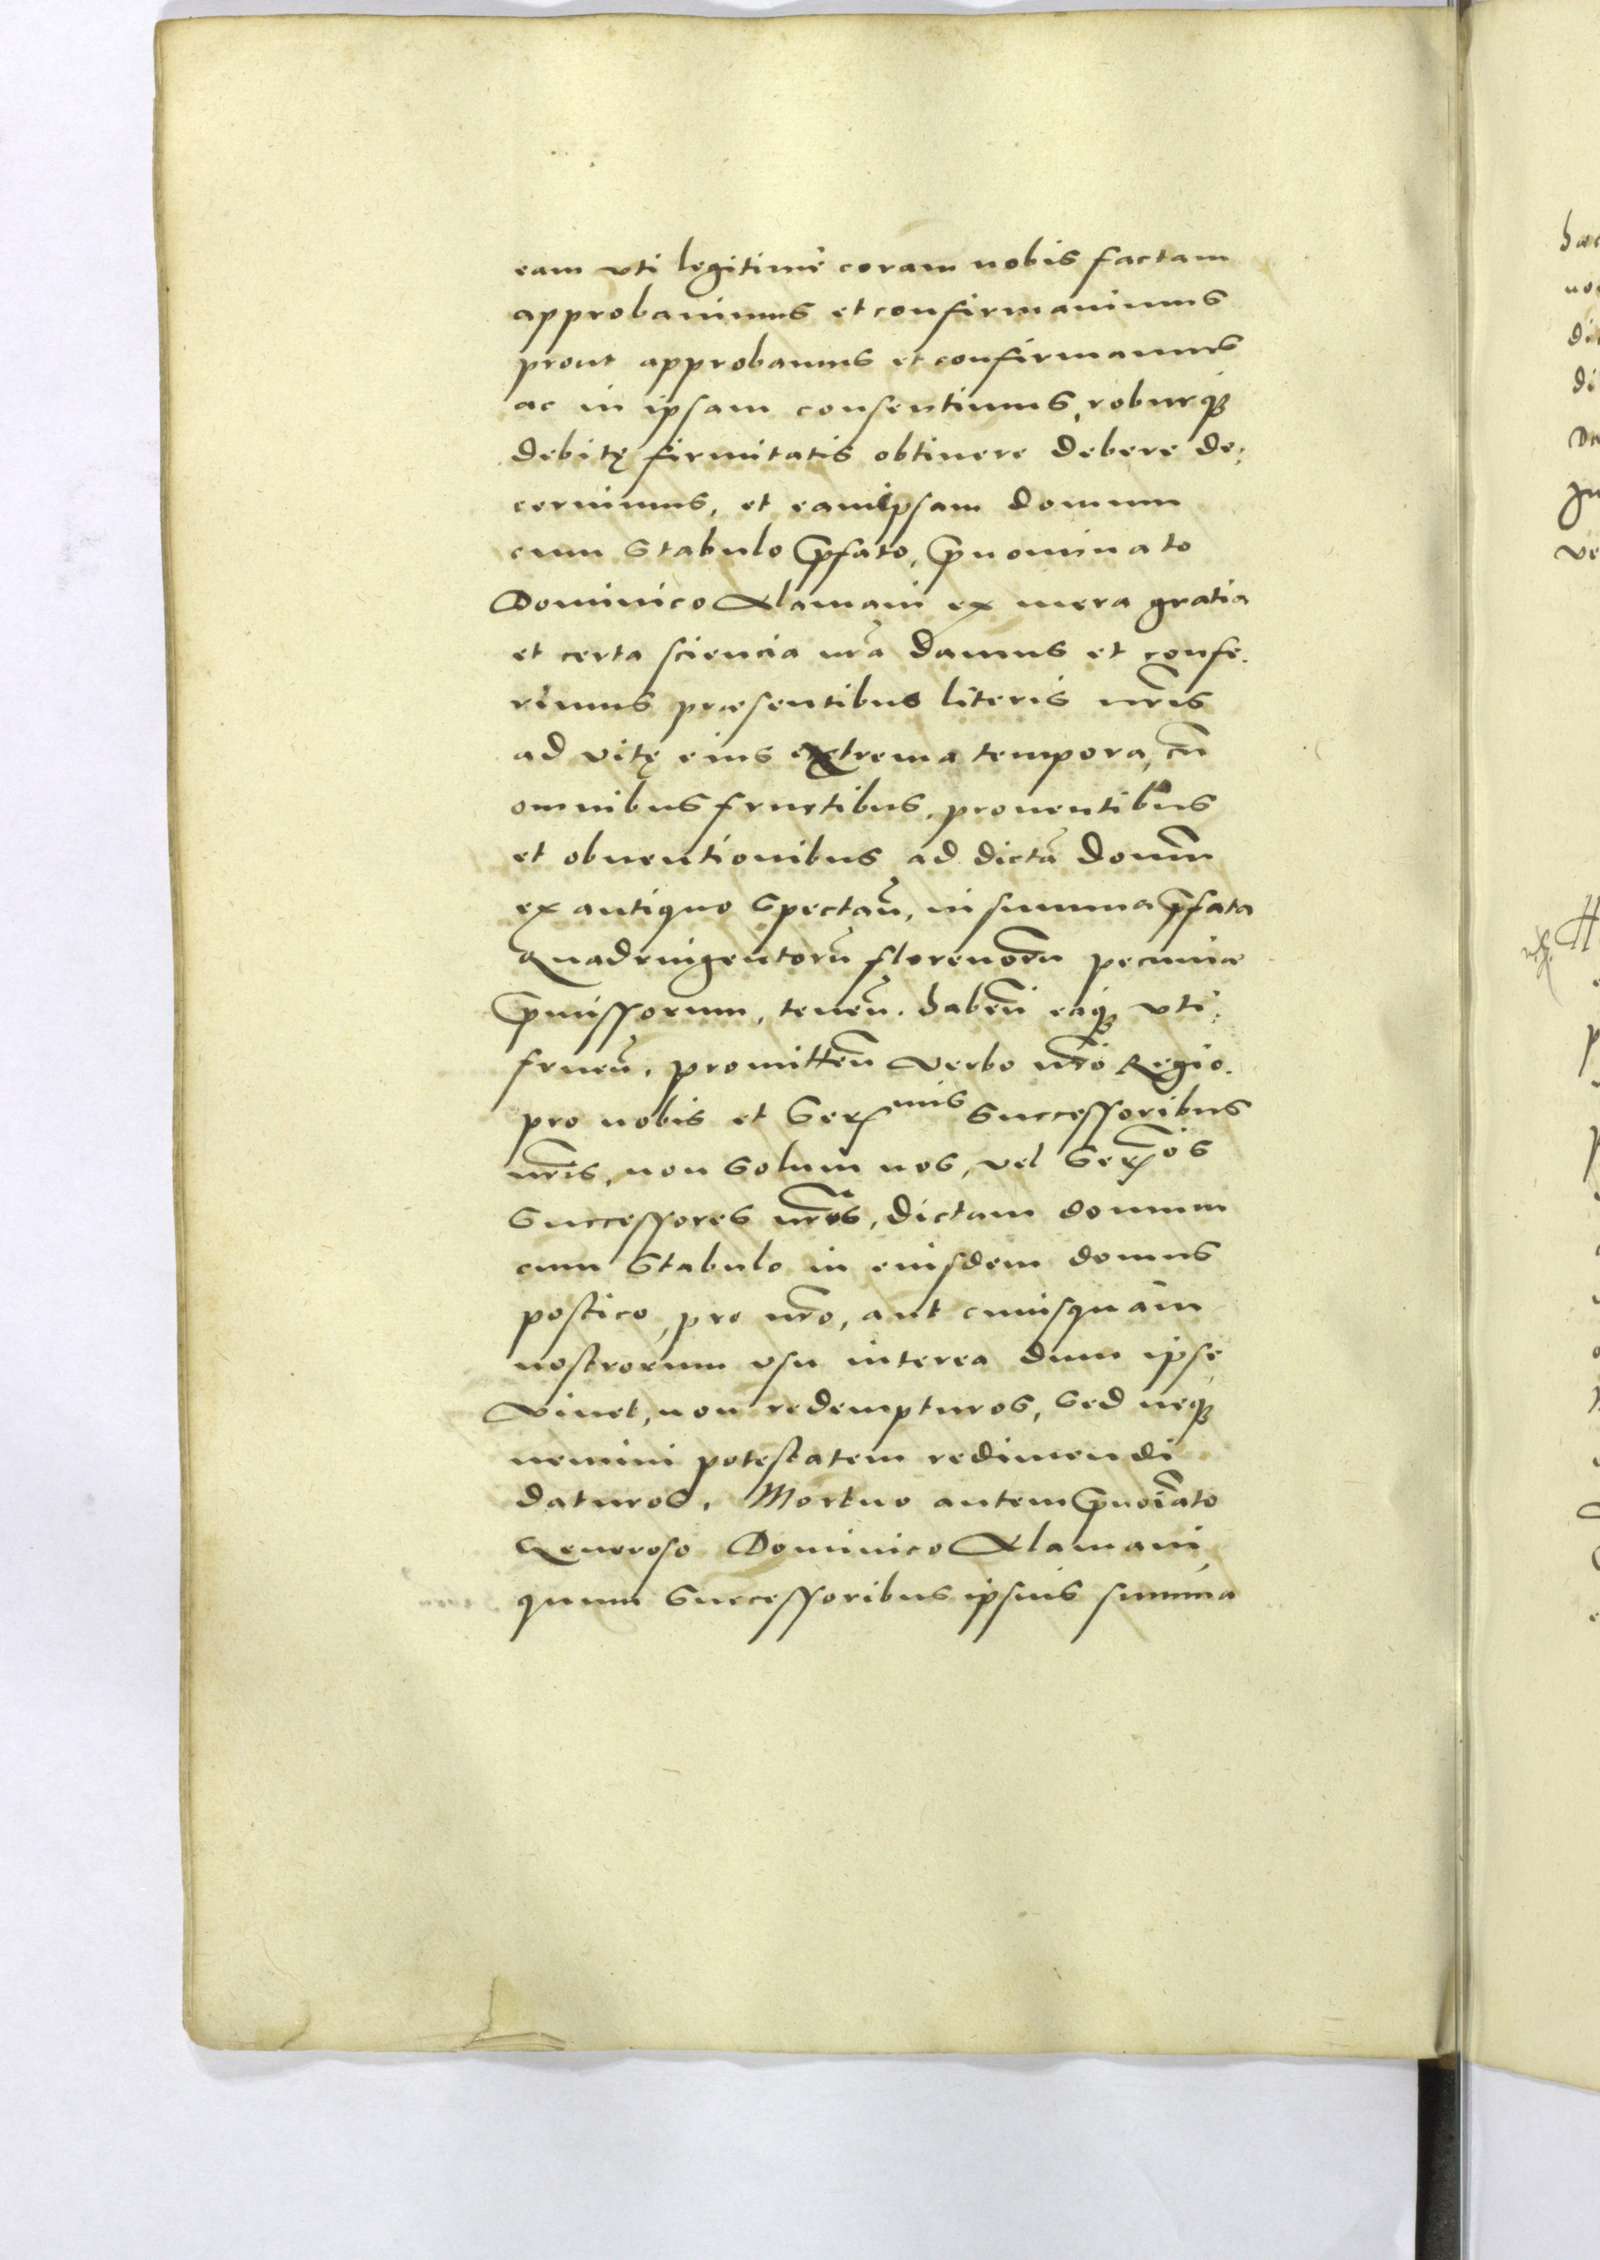 eam vti legitimè coram nobis factam
approbauimus et confirmauimus
prout approbamus et confirmamus
ac in ipsam consentimus, roburqꝫ
debitę firmitatis obtinere debere de:
cernimus, et eamipsam domum
cum Stabulo p̃fato, p̃nominato
Dominico Alamani ex mera gratia
et certa sciencia nr̃a damus et confe.
rimus præsentibus literis nr̃is
ad vitę eius extrema tempora, cũ
omnibus fructibus, prouentibus
et obuentionibus ad dictã domũ
ex antiquo Spectañ, in summa p̃fata
Quadringentorũ florenorũ pecuniæ
p̃missorum, teneñ. habeñ eaqꝫ vti:
frueñ. promitteñ verbo nr̃o Regio.
pro nobis et Ser:mis Successoribus
nr̃is, non Solum nos, vel Ser:os
Successores nr̃os, dictam domum
cum Stabulo in eiusdem domus
postico, pro nr̃o, aut cuiusquam
nostrorum vsu interea dum ipse
viuet, non redempturos, Sed neqꝫ
nemini potestatem redimendi
daturos. Mortuo autem p̃noĩato
Generoso Dominico Alamani
quum Successoribus ipsius summa